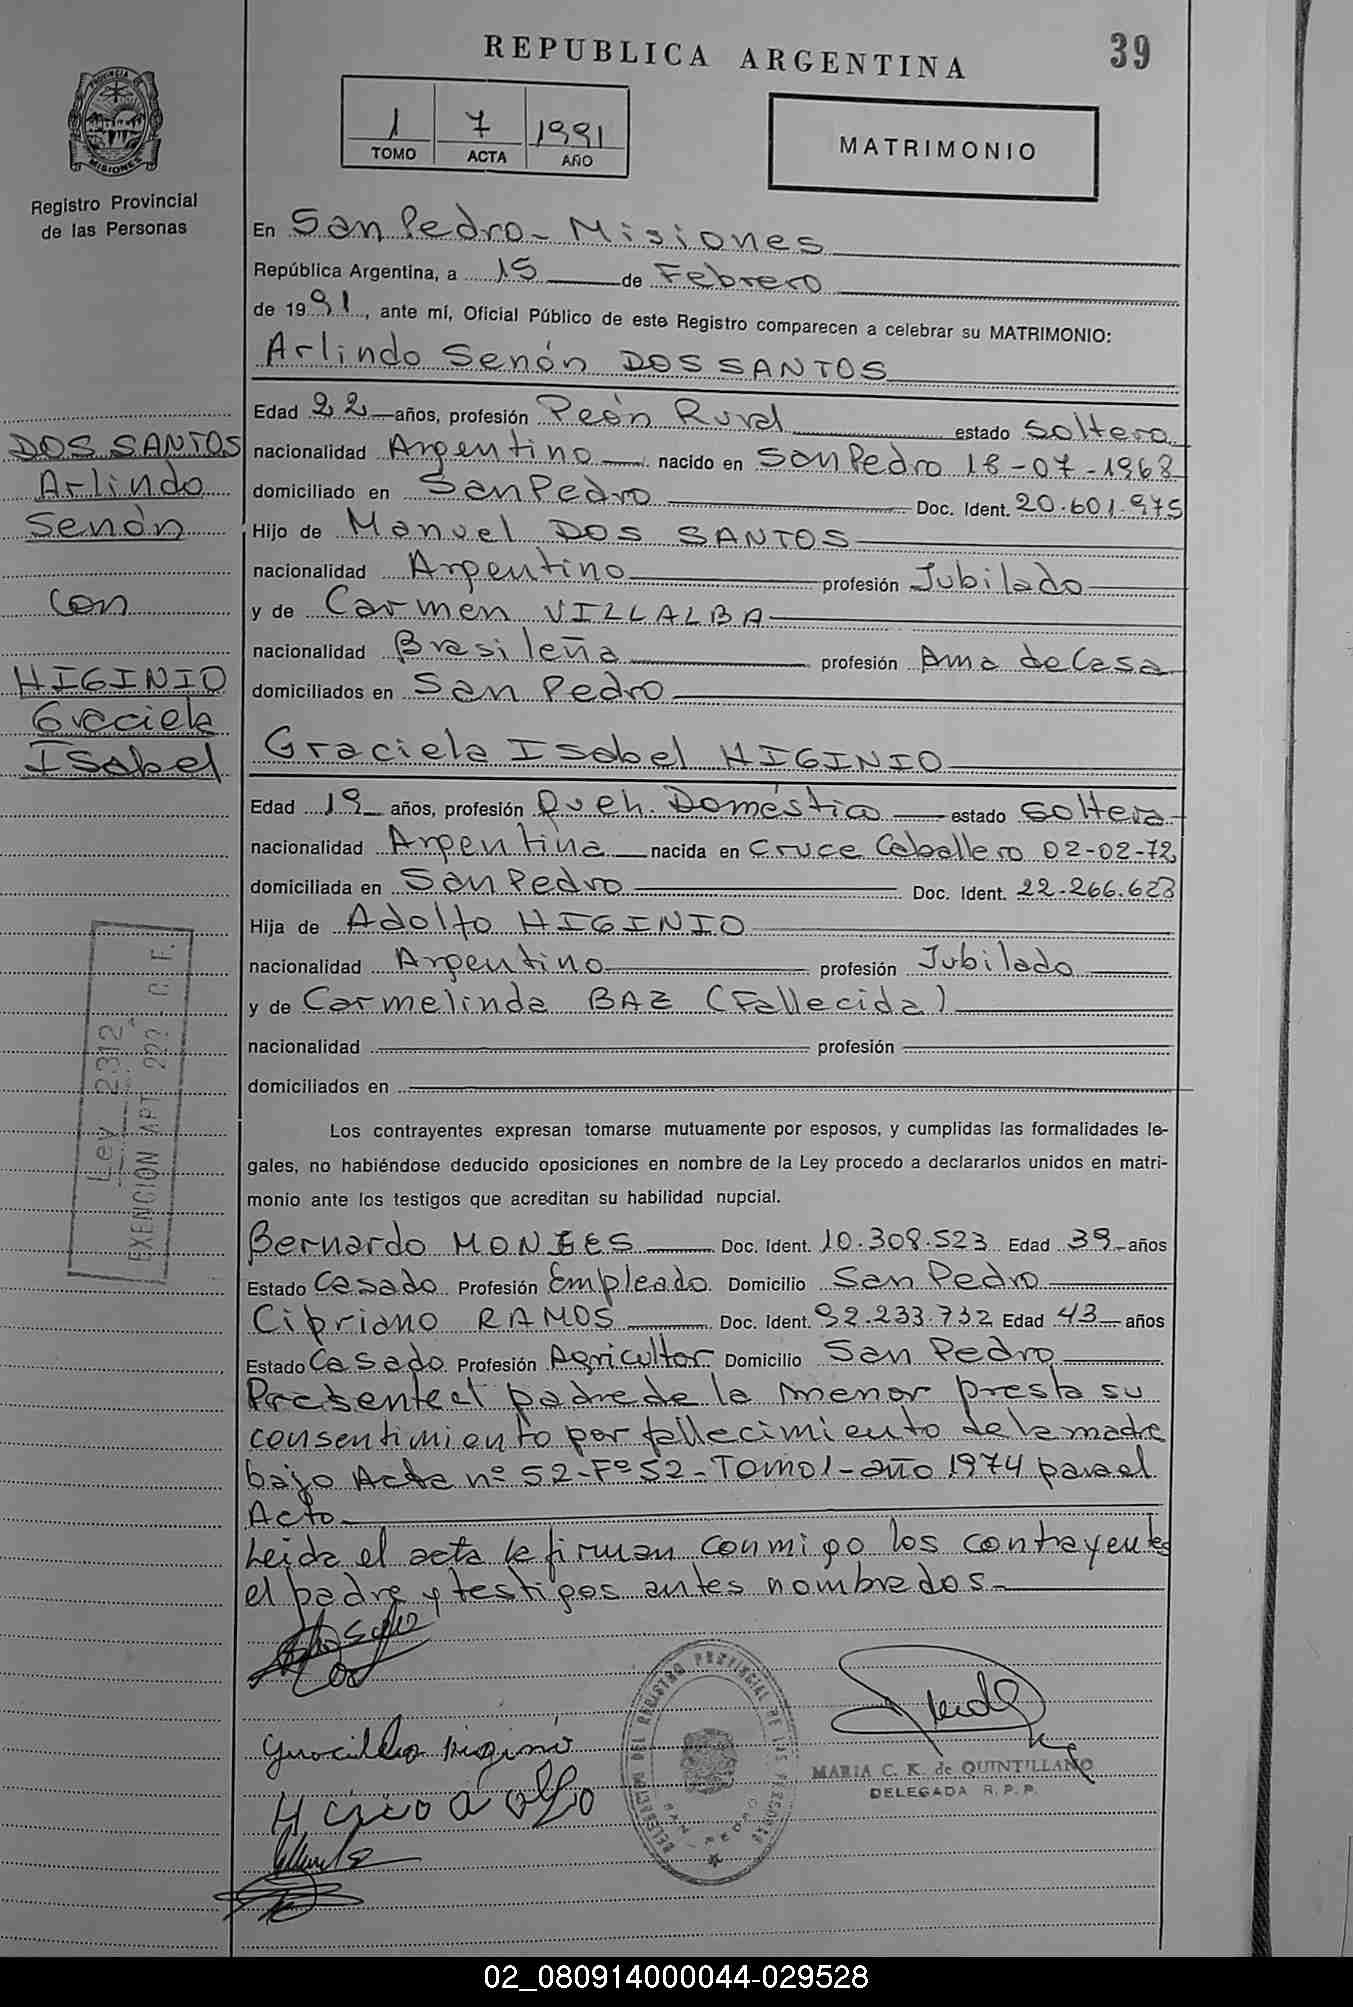 REPUBLICA ARGENTINA
39
PROVINCIA DE
MISIONES
Registro Provincial
de las Personas
1 7 1991
TOMO ACTA AÑO
MATRIMONIO
En San Pedro - Misiones
República Argentina, a 15 de Febrero
de 1991, ante mí, Oficial Público de este Registro comparecen a celebrar su MATRIMONIO:
Arlindo Senón DOS SANTOS
Edad 22 años, profesión Peón Rural estado soltero
nacionalidad Argentino nacido en San Pedro 18-07-1968
domiciliado en San Pedro Doc. Ident. 20.601.975
Hijo de Manuel DOS SANTOS
nacionalidad Argentino profesión Jubilado
y de Carmen VILLALBA
nacionalidad Brasileña profesión Ama de Casa
domiciliados en San Pedro
Graciela Isabel HIGINIO
Edad 19 años, profesión Queh. Doméstico estado soltera
nacionalidad Argentina nacida en Cruce Caballero 02-02-72
domiciliada en San Pedro Doc. Ident. 22.266.623
Hija de Adolfo HIGINIO
nacionalidad Argentino profesión Jubilado
y de Carmelinda BAZ (Fallecida)
nacionalidad profesión
domiciliados en
Los contrayentes expresan tomarse mutuamente por esposos, y cumplidas las formalidades le-
gales, no habiéndose deducido oposiciones en nombre de la Ley procedo a declararlos unidos en matri-
monio ante los testigos que acreditan su habilidad nupcial.
Bernardo MONGES Doc. Ident. 10.308.523 Edad 39 años
Estado Casado Profesión Empleado Domicilio San Pedro
Cipriano RAMOS Doc. Ident. 92.233.732 Edad 43 años
Estado Casado Profesión Agricultor Domicilio San Pedro
Presente el padre de la menor presta su
consentimiento por fallecimiento de la madre
bajo Acta nº 52-Fº52-Tomo 1-año 1974 para el
Acto
Leida el acta le firman conmigo los contrayentes
el padre y testigos antes nombrados.-
DOS SANTOS
Arlindo
Senón
con
HIGINIO
Graciela
Isabel
Ley 2312
EXENCION ART 222 - C. F.
DELEGACION DEL REGISTRO PROVINCIAL DE LAS PERSONAS
SAN PEDRO
MARIA C. K. de QUINTILLANO
DELEGADA R. P. P.
02_080914000044-029528